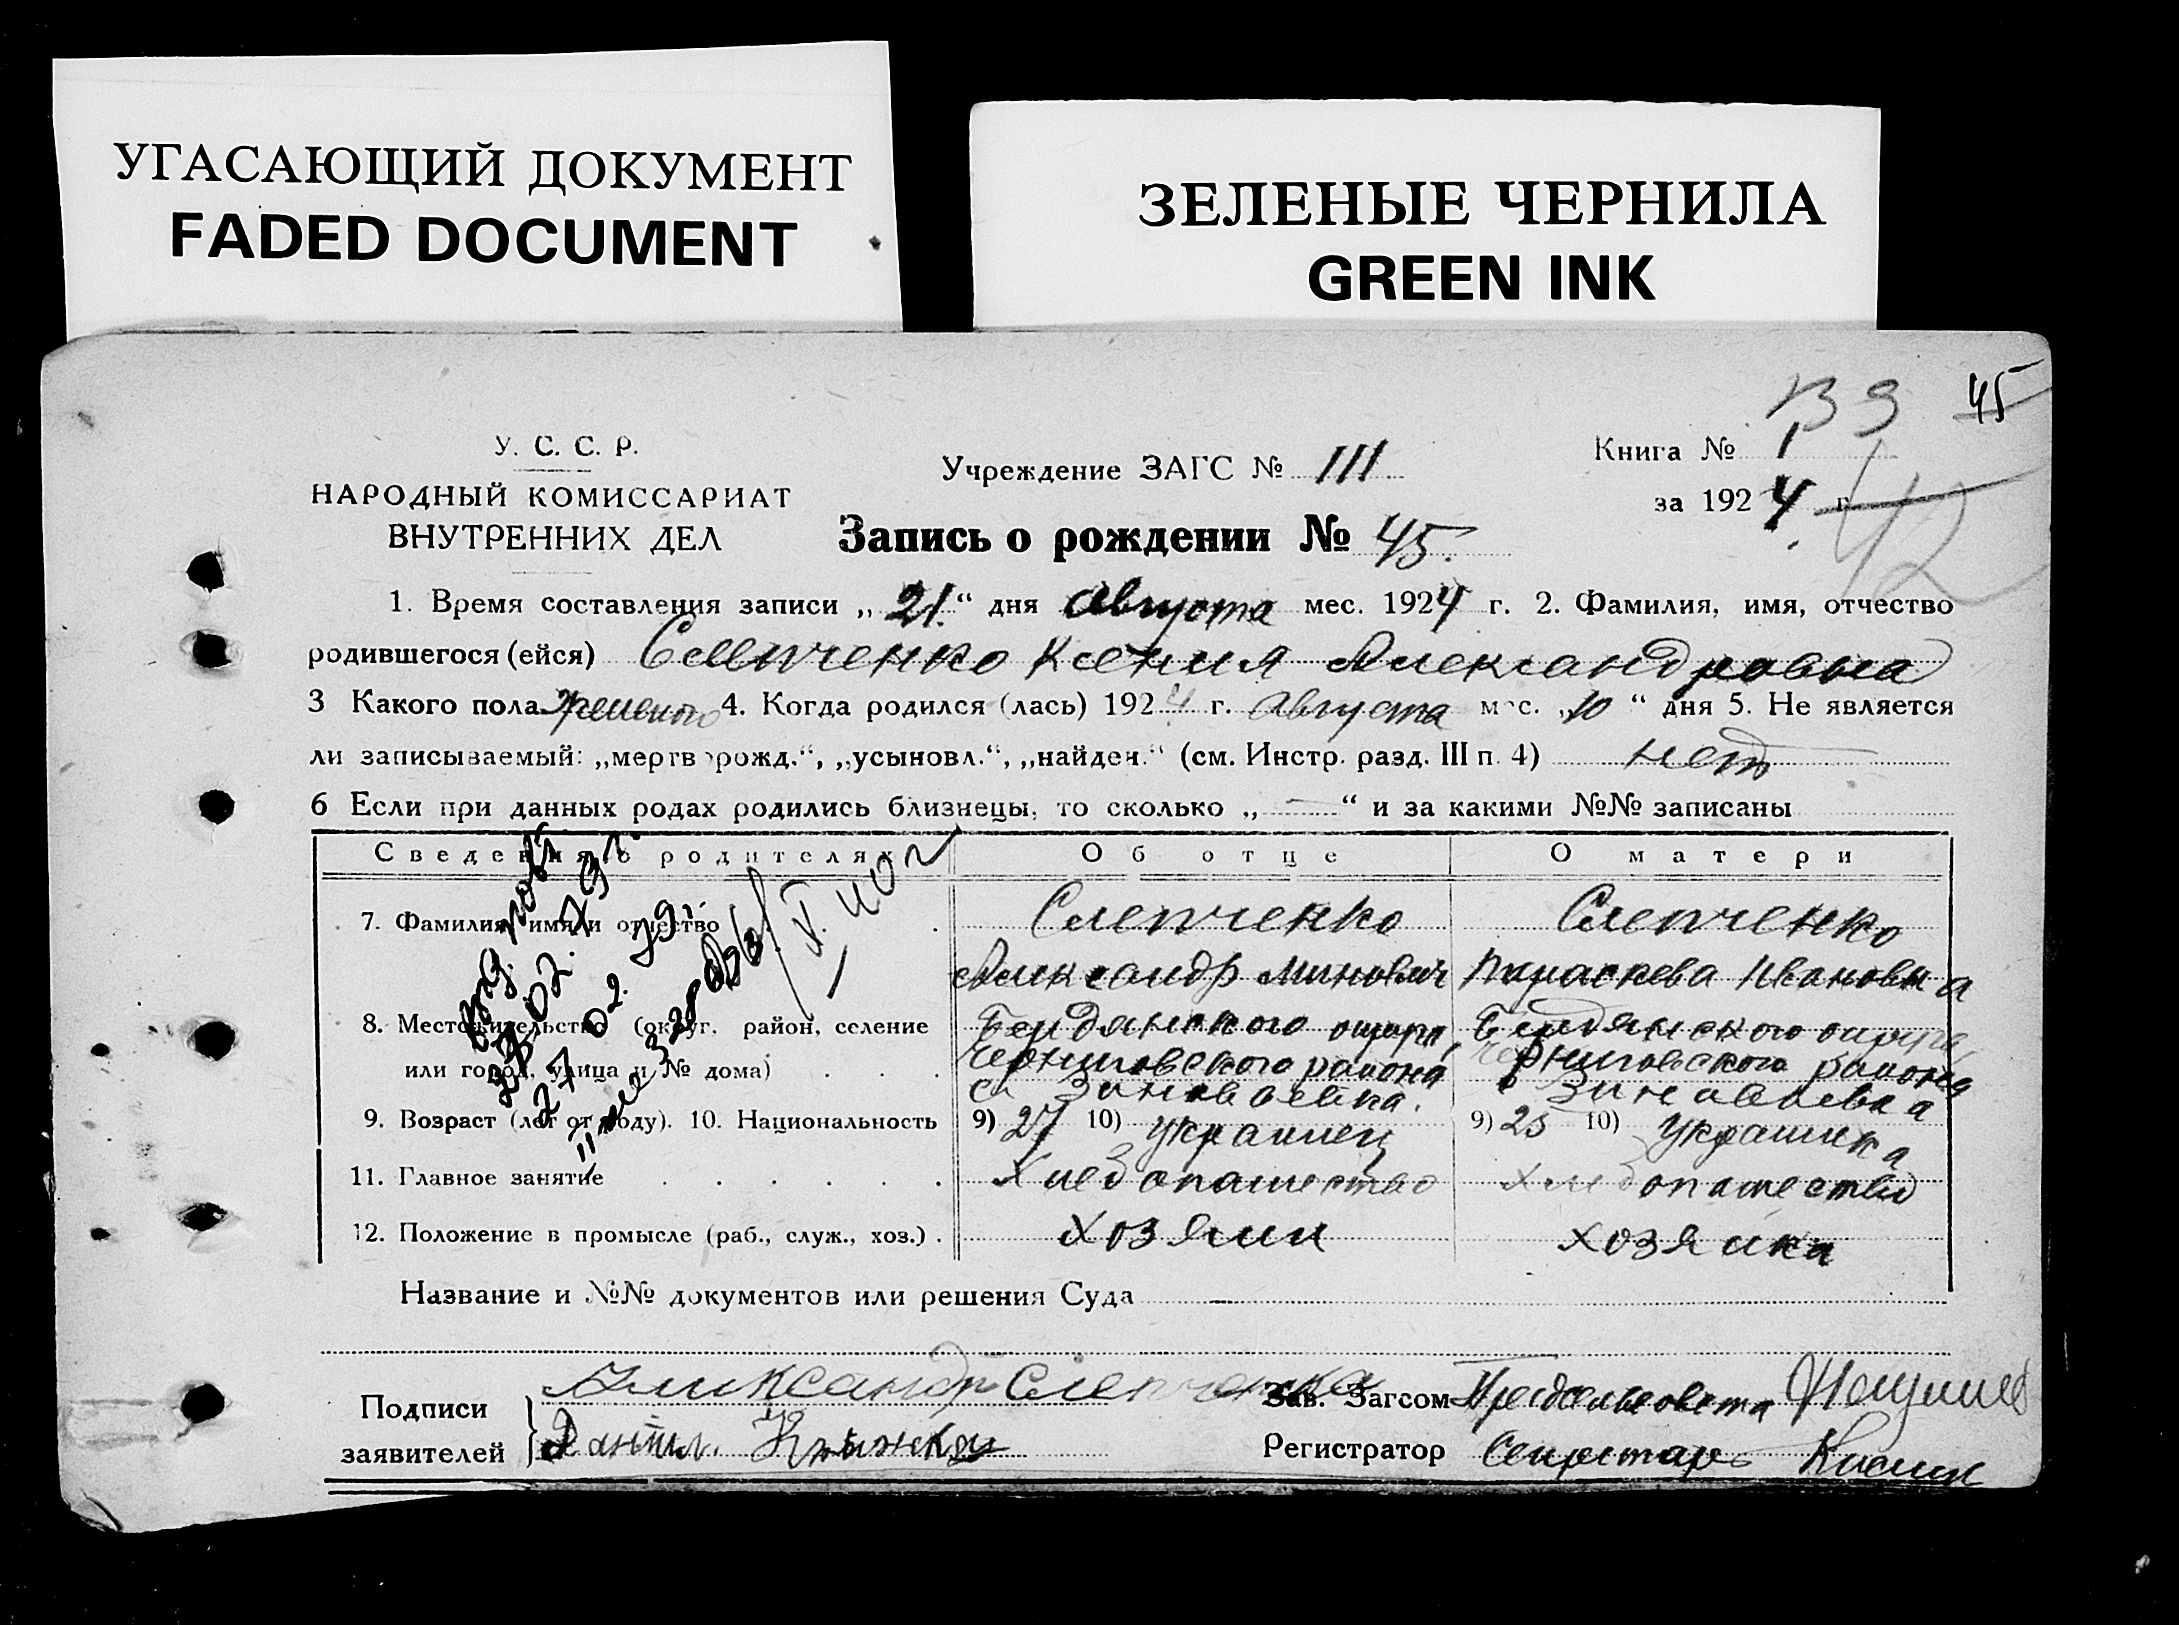 УГАСАЮЩИЙ ДОКУМЕНТ
FADED DOCUMENT
ЗЕЛЕНЫЕ ЧЕРНИЛА
GREEN INK
45
У. С. С. Р.
НАРОДНЫЙ КОМИССАРИАТ
ВНУТРЕННИХ ДЕЛ
Учреждение ЗАГС № III
Книга № 1
за 1924 г.
42
Запись о рождении № 45.
1. Время составления записи „21.“ дня Августа мес. 1924 г. 2. Фамилия, имя, отчество
родившегося (ейся) Слепченко Ксения Александровна
3 Какого пола женского 4. Когда родился (лась) 1924 г. Августа мес. „10“ дня 5. Не является
ли записываемый: „мертворожд.“, „усыновл.“, „найден.“ (см. Инстр. разд. III п. 4) нет
6 Если при данных родах родились близнецы, то сколько „—“ и за какими №№ записаны
Сведения о родителях Об отце О матери
7. Фамилия, имя и отчество Слепченко Слепченко
Александр Минович Параскева Ивановна
8. Местожительство (округ, район, селение Бердянского округа, Бердянского округа,
или город, улица и № дома) Черниговского района Черниговского района
с Зиновьевка. с Зиновьевка
9. Возраст (лет от роду). 10. Национальность 9) 27 10) украинец 9) 25 10) украинка
11. Главное занятие Хлебопашество хлебопашество
12. Положение в промысле (раб., служ., хоз.) хозяин хозяйка
Название и №№ документов или решения Суда —
Подписи заявителей Александр Слепченко
Даніил
Зав. Загсом Предсельсовета
Регистратор Секретарь